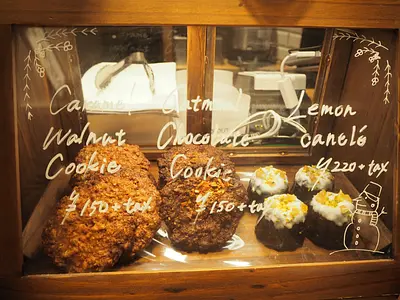 Caramel
Walnut
Cookie
¥150+tax
Oatmeal
Chocolate
Cookie
¥150+tax
Lemon
canelé
¥220+tax